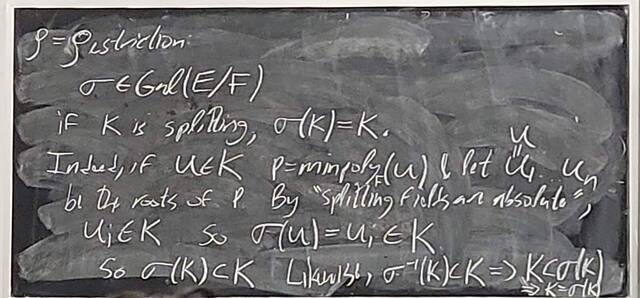 ρ = ρestriction.
σ ∈ Gal(E/F)
if K is splitting, σ(K) = K.
Indeed, if u ∈ K p = minpoly_F(u) & let u = u₁ ... uₙ
be the roots of p. By "splitting fields are absolute",
uᵢ ∈ K so σ(u) = uᵢ ∈ K
So σ(K) ⊂ K Likewise, σ⁻¹(K) ⊂ K ⇒ K ⊂ σ(K)
⇒ K = σ(K)